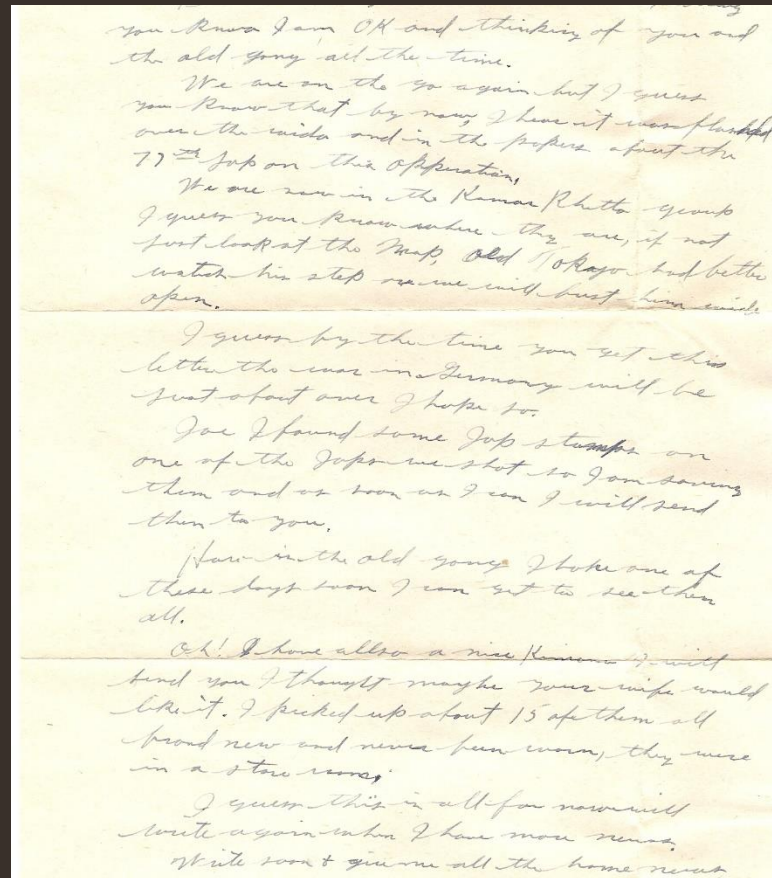 you know I am OK and thinking of you and
the old gang all the time.
We are on the go again but I guess
you know that by now, I hear it was flashed
over the raido and in the papers about the
77th Jap on this opperation.
We are now in the Kamar Rhetto group
I guess you know where they are, if not
just look at the map, Old Tokajo had better
watch his step we will bust him wide
open.
I guess by the time you get this
letter the war in Germany will be
just about over I hope so.
Joe I found some Jap stamps on
one of the Japs we shot so I am saving
them and as soon as I can I will send
them to you.
How is the old gang I hope one of
these days soon I can get to see them
all.
Oh! I have allso a nice Kimona I will
send you I thought maybe your wife would
like it. I picked up about 15 of them all
brand new and never been worn, they were
in a store room.
I guess this is all for now will
write again when I have more news.
Write soon & give me all the home news